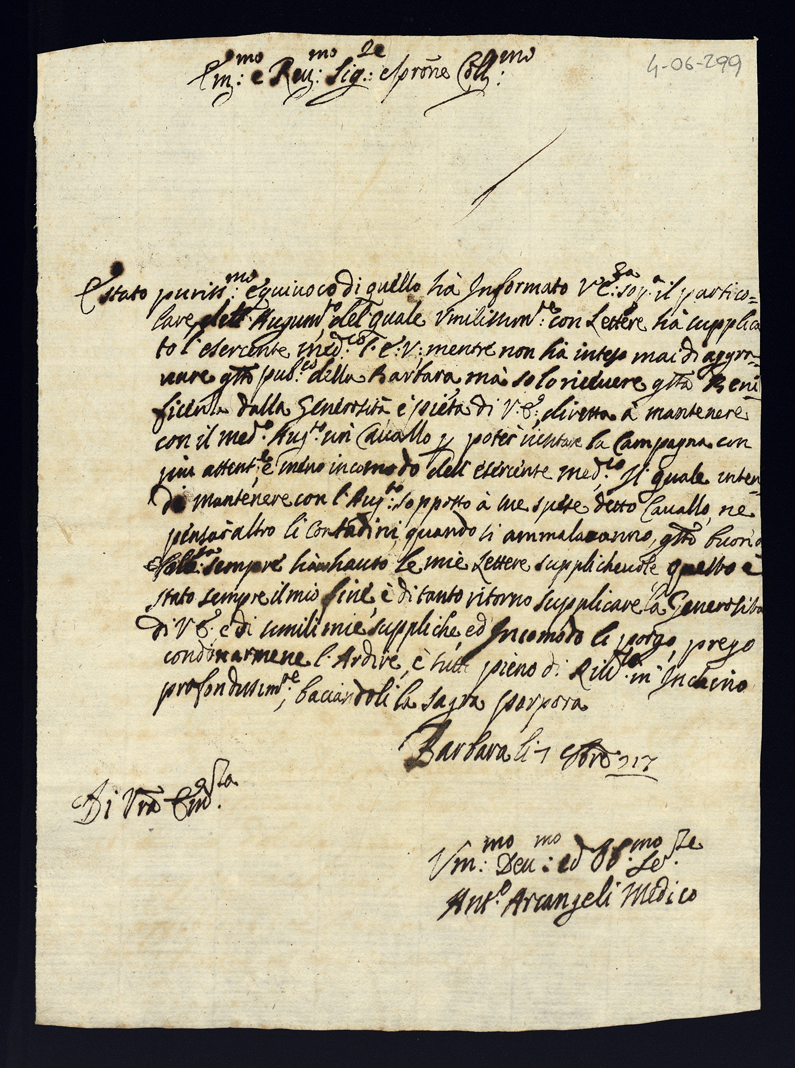 4-06-299
Em:mo e Reu:mo Sig:re e prone Coll:mo
E stato puriss:mo equiuoco di quello hà Informato V E:za sop:a il partico-
lare dell'Augum:to del quale Vmilissim:te con Lettere hà supplica
to l'esercente med:co l'E: V: mentre non hà inteso mai di aggra-
uare qsto pub:co della Barbara, mà solo riceuere qsta Bene
ficenza dalla Generosità è pietà di V: E:, diretta à mantenere
con il med:o Aug:to un Cauallo p poter uisitare la Campagna con
più attent:e, è meno incomodo dell'esercente med:co Il quale inten-
de mantenere con l'Aug:to sopposto à sue spese detto Cauallo, ne
pensar altro li Contadini, quando si ammalaranno, qsto buono
sempre hàn hauto le mie Lettere supplicheuole questo è
stato sempre il mio fine, è di tanto ritorno supplicare la Generosità
di V E:, e di simili mie suppliche, ed Incomodo li porgo, prego
condonarmene l'Ardire, è tutto pieno di in Inchino
profondissim:te, baciandoli la sagra porpora
Barbara li 7 9bre 717
Di Vra Em:za
Vm:mo Deu:mo ed Ob:mo Se:re
Ant:o Arcangeli Medico